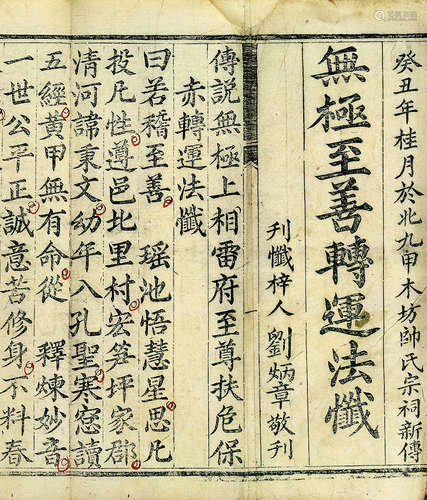 癸丑年桂月於北九甲木坊帥氏宗祠新傳
無極至善轉運法懺
刊懺梓人劉炳章敬刊
傳説無極上相雷府至尊扶危保
赤轉運法懺
曰若稽至善　瑶池悟慧星思凡
投凡性遵邑北里村宏笏坪家郡
清河諱秉文幼年入孔聖寒窓讀
五經黄甲無有命從　釋煉妙音
一世公平正誠意苦修身不料春